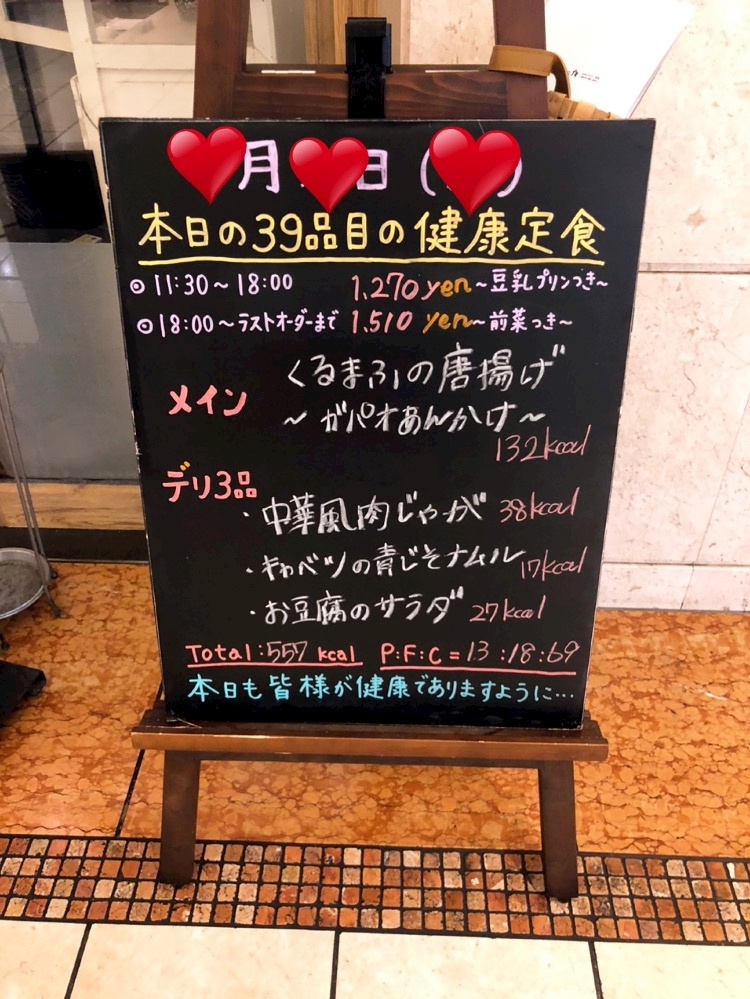 月 日 ( )
本日の39品目の健康定食
◎11:30～18:00 1,270yen～豆乳プリンつき～
◎18:00～ラストオーダーまで 1,510 yen～前菜つき～
メイン くるまふの唐揚げ
～ガパオあんかけ～
132kcal
デリ3品
・中華風肉じゃが 38kcal
・キャベツの青じそナムル 17kcal
・お豆腐のサラダ 27kcal
Total:557 kcal P:F:C=13:18:69
本日も皆様が健康でありますように…